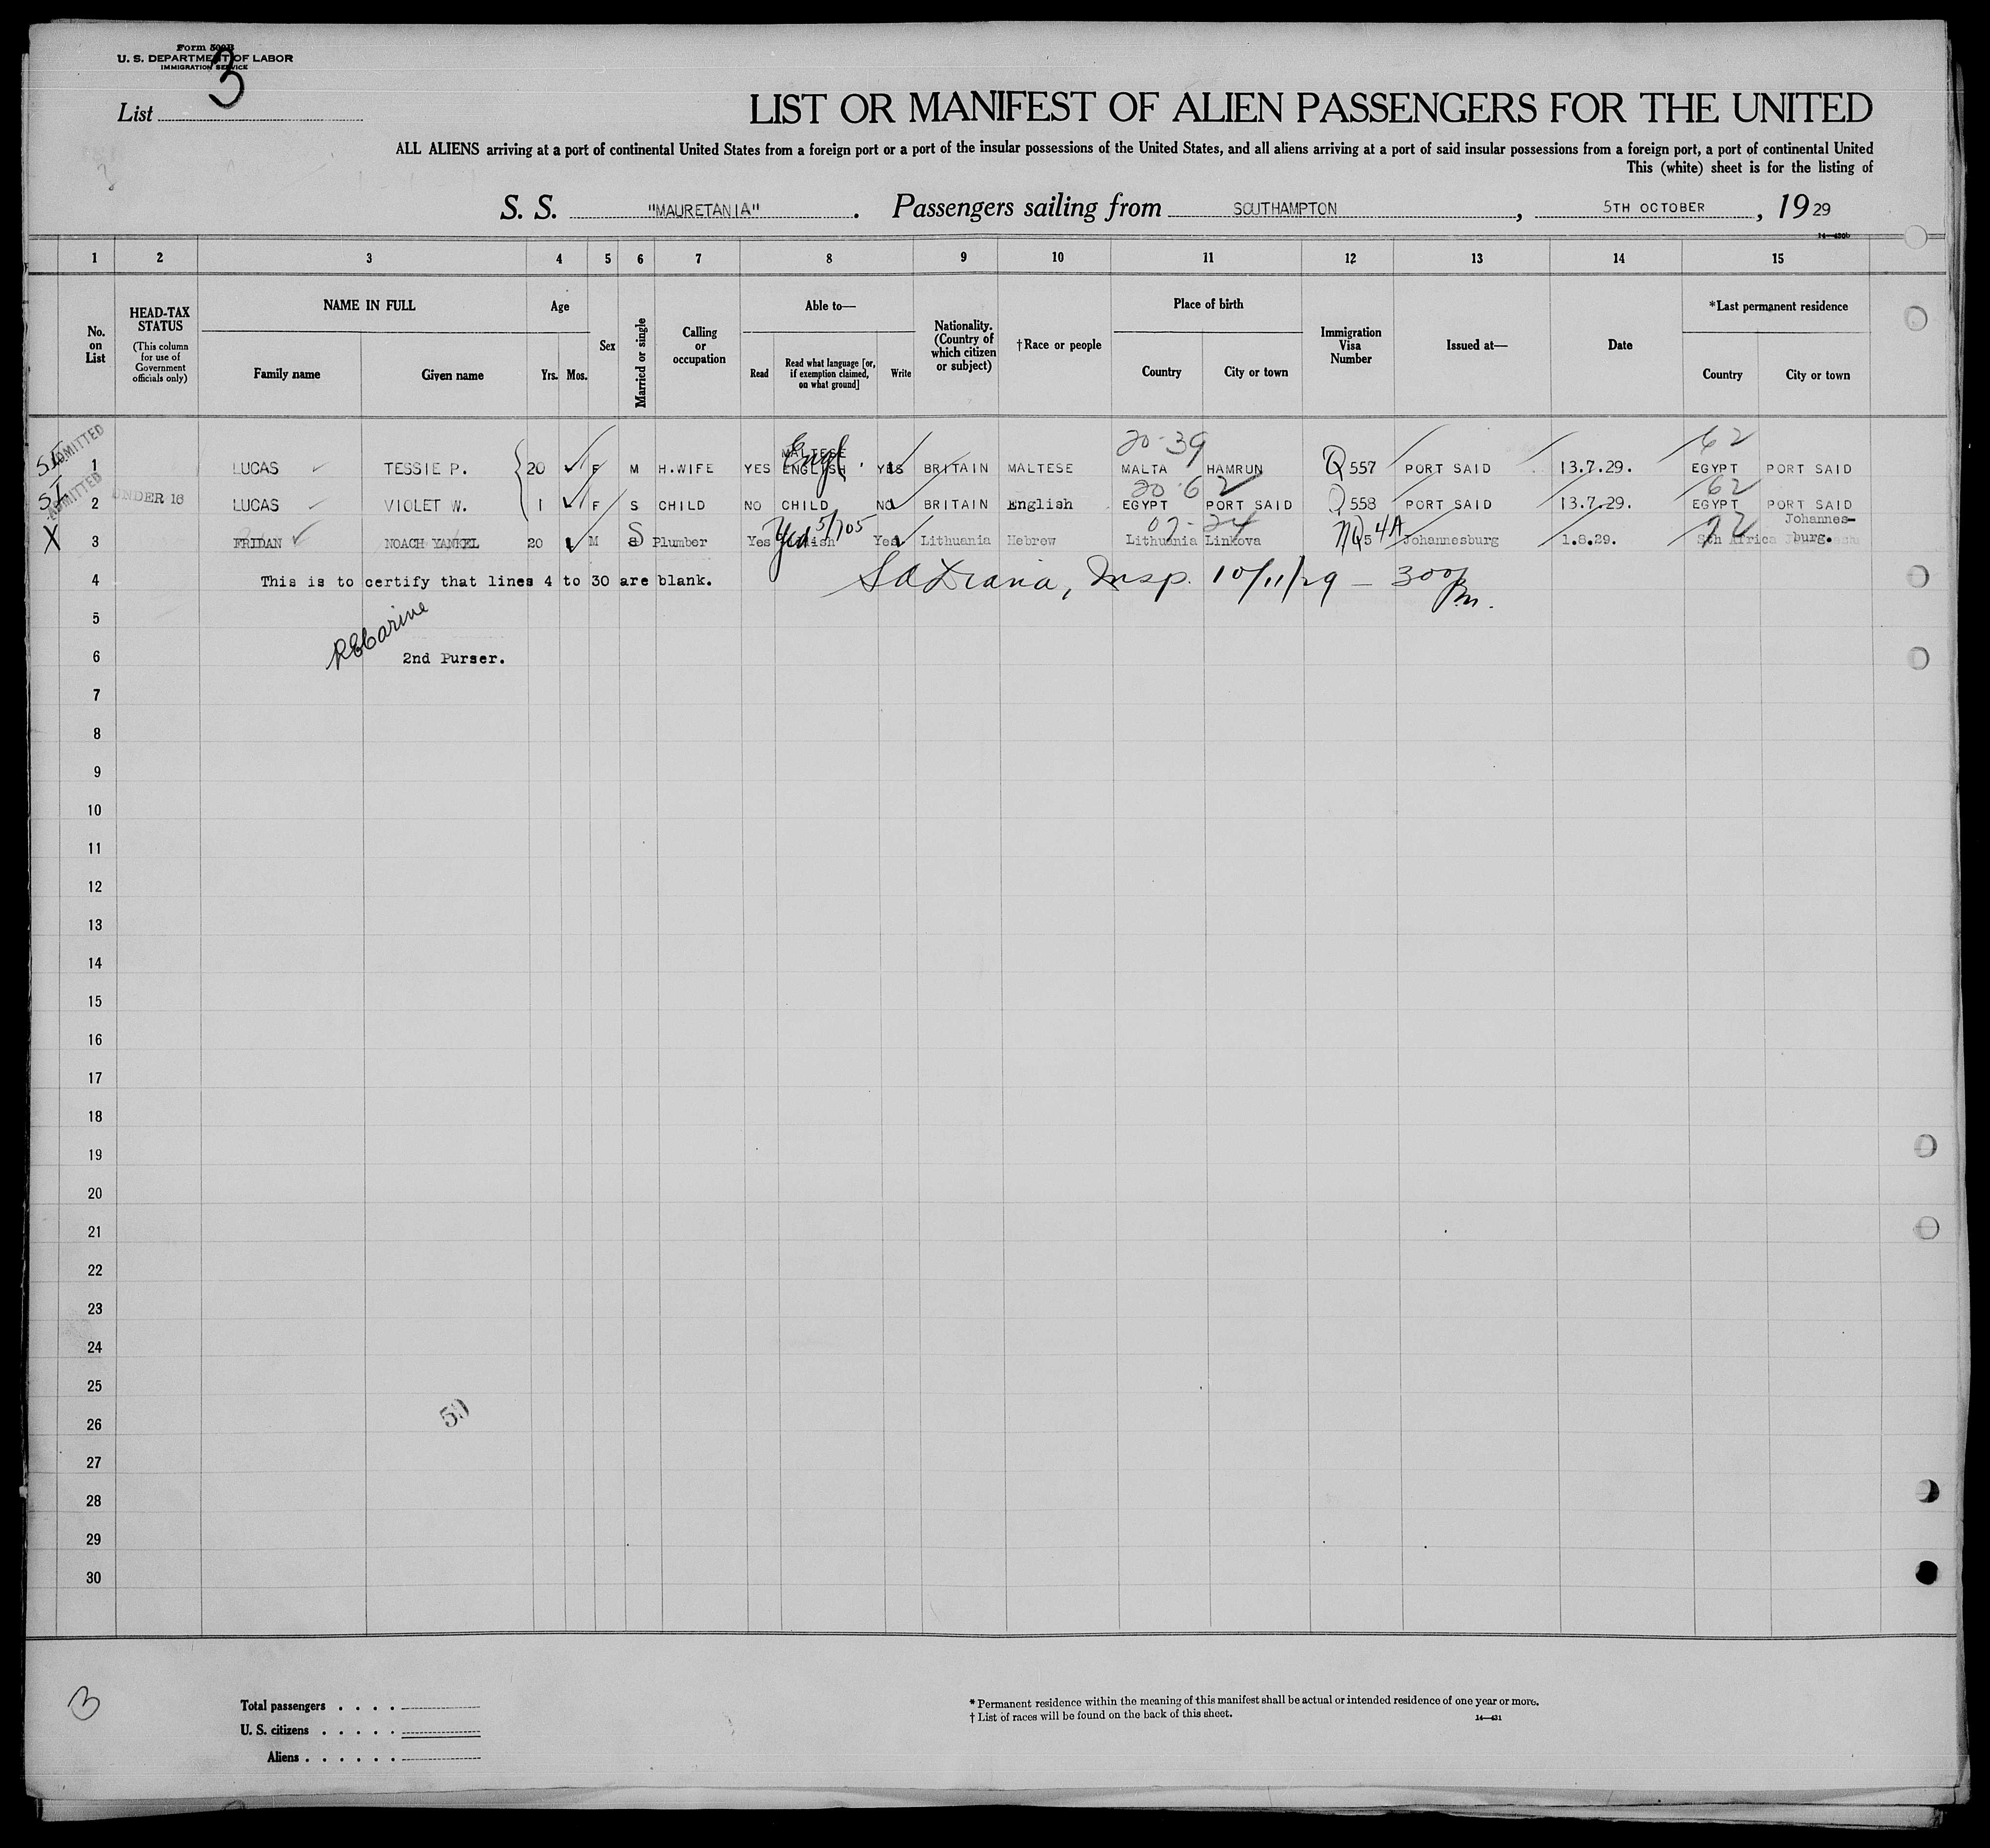 Form 500B
U. S. DEPARTMENT OF LABOR
IMMIGRATION SERVICE
3
List
LIST OR MANIFEST OF ALIEN PASSENGERS FOR THE UNITED
ALL ALIENS arriving at a port of continental United States from a foreign port or a port of the insular possessions of the United States, and all aliens arriving at a port of said insular possessions from a foreign port, a port of continental United
This (white) sheet is for the listing of
S. S. "MAURETANIA". Passengers sailing from SOUTHAMPTON, 5TH OCTOBER, 1929
14—430b
1 2 3 4 5 6 7 8 9 10 11 12 13 14 15
No. on List
HEAD-TAX STATUS
(This column for use of Government officials only)
NAME IN FULL
Family name Given name
Age
Yrs. Mos.
Sex
Married or single
Calling or occupation
Able to—
Read
Read what language [or, if exemption claimed, on what ground]
Write
Nationality. (Country of which citizen or subject)
†Race or people
Place of birth
Country City or town
Immigration Visa Number
Issued at—
Date
*Last permanent residence
Country City or town
SI ADMITTED 20-39 62
MALTESE Engl
1 LUCAS TESSIE P. 20 F M H.WIFE YES ENGLISH YES BRITAIN MALTESE MALTA HAMRUN Q 557 PORT SAID 13.7.29. EGYPT PORT SAID
SI ADMITTED 20-62 62
2 UNDER 16 LUCAS VIOLET W. 1 F S CHILD NO CHILD NO BRITAIN English EGYPT PORT SAID Q 558 PORT SAID 13.7.29. EGYPT PORT SAID
X S Yid 5/705 07-24 NQ 4A 72 Johannes-
3 FRIDAN NOACH YANKEL 20 M S Plumber Yes Yes Lithuania Hebrew Lithuania Linkova 5 Johannesburg 1.8.29. Sth Africa burg.
4 This is to certify that lines 4 to 30 are blank. Insp. 10/11/29 — 300 Pm.
5
6 2nd Purser.
7
8
9
10
11
12
13
14
15
16
17
18
19
20
21
22
23
24
25
50
26
27
28
29
30
3
Total passengers . . . .
U. S. citizens . . . . .
Aliens . . . . . .
* Permanent residence within the meaning of this manifest shall be actual or intended residence of one year or more.
† List of races will be found on the back of this sheet.
14—431